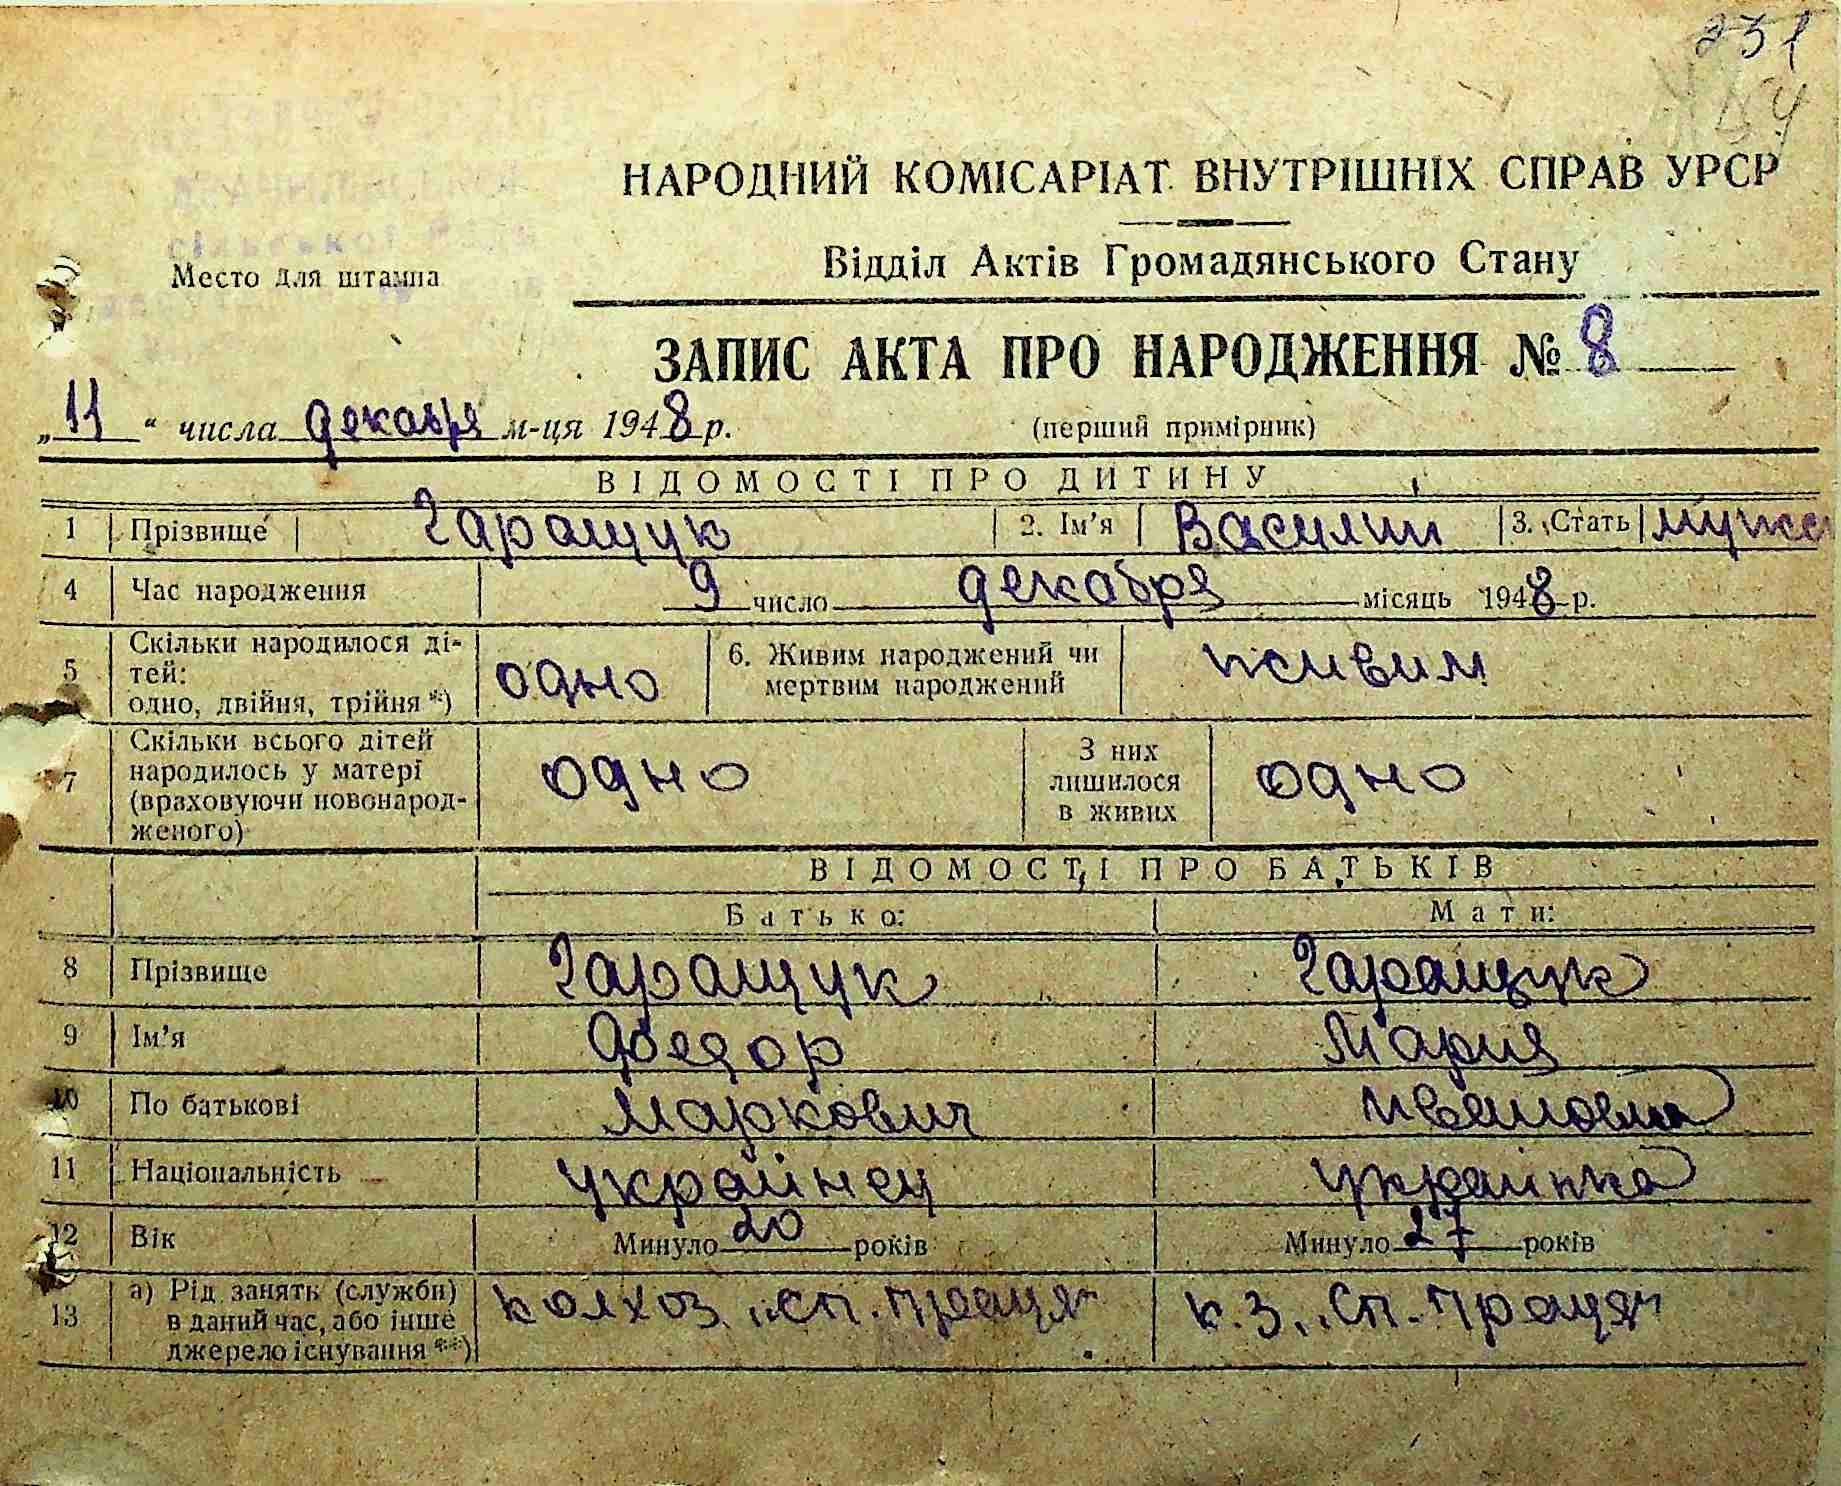 231
НАРОДНИЙ КОМІСАРІАТ ВНУТРІШНІХ СПРАВ УРСР
сільської Ради
Место для штампа
Відділ Актів Громадянського Стану
ЗАПИС АКТА ПРО НАРОДЖЕННЯ № 8
„11“ числа декабря м-ця 1948 р.
(перший примірник)
ВІДОМОСТІ ПРО ДИТИНУ
1 Прізвище Гаращук 2. Ім'я Василий 3. Стать мужс
4 Час народження 9 число декабря місяць 1948 р.
5 Скільки народилося ді-
тей:
одно, двійня, трійня *)
одно
6. Живим народжений чи
мертвим народжений
живим
7 Скільки всього дітей
народилось у матері
(враховуючи новонарод-
женого)
одно
З них
лишилося
в живих
одно
ВІДОМОСТІ ПРО БАТЬКІВ
Батько: Мати:
8 Прізвище Гаращук Гаращук
9 Ім'я Федор Мария
10 По батькові Маркович Ивановна
11 Національність украйнец украінка
12 Вік Минуло 20 років Минуло 27 років
13 а) Рід занять (служби)
в даний час, або інше
джерело існування **)
колхоз „сп. праця" к.з. „Сп. праця"